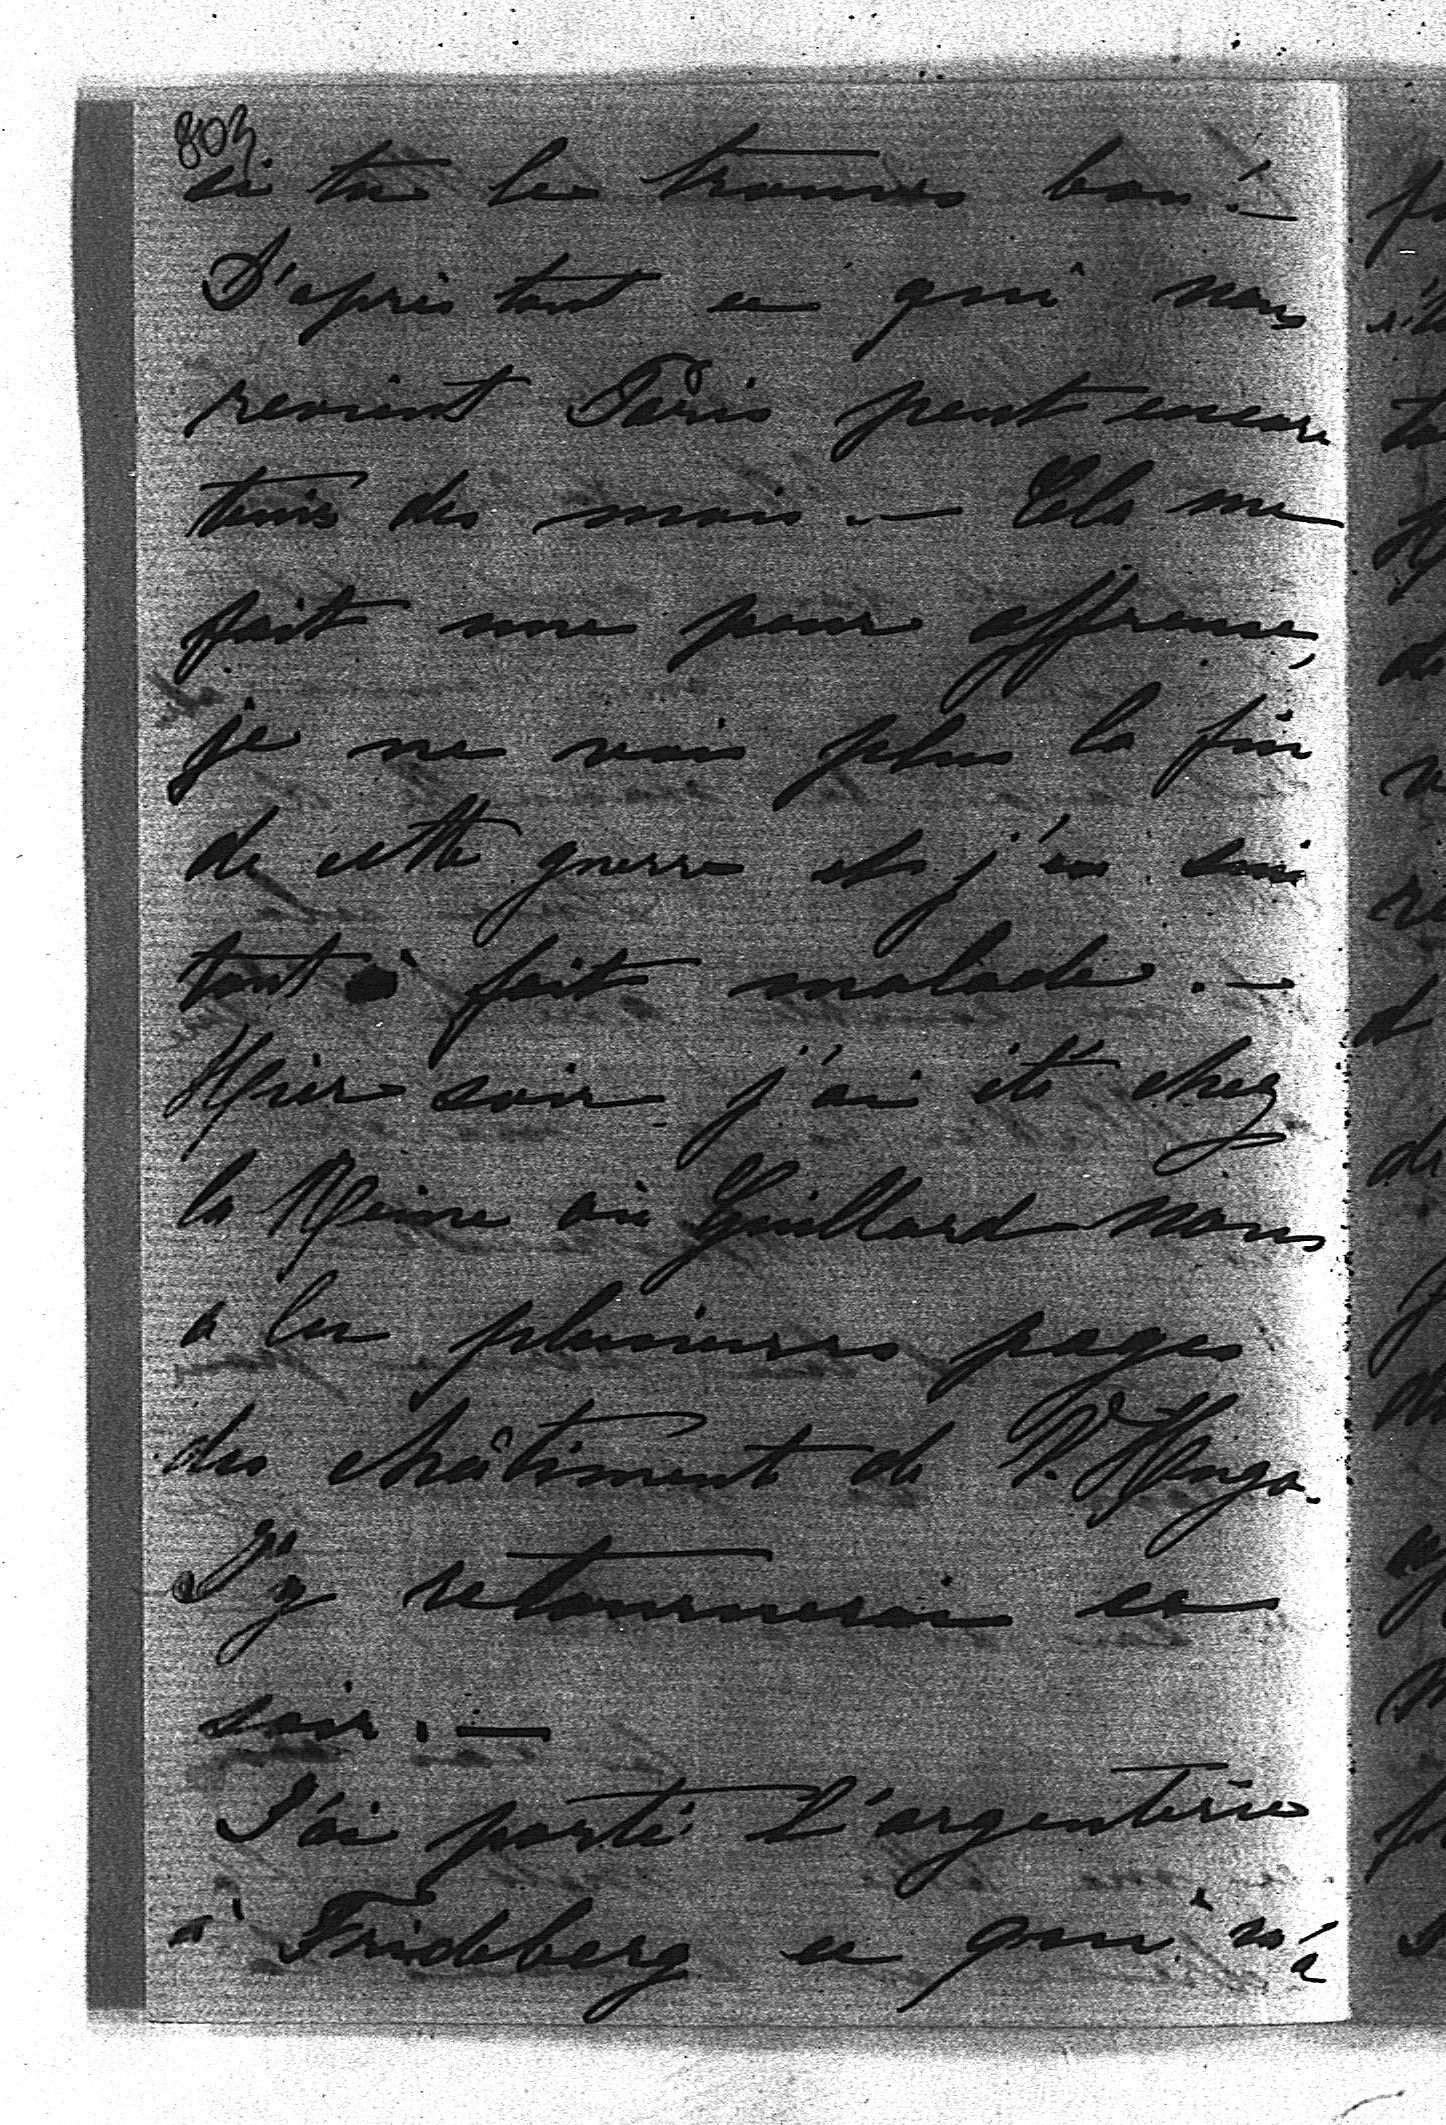 803
si tu le trouves bon! –
D'après tout ce qui nous
revient Paris peut encore
tenir des mois. – Cela me
fait une peur affreuse,
je ne vois plus la fin
de cette guerre et j'en suis
tout à fait malade. –
Hier soir j'ai été chez
la Reine où Guillard nous
a lu plusieurs pages
des châtiment de V. Hugo.
J'y retournerai ce
soir. –
J'ai porté l'argenterie
à Friedberg ce qui n'a